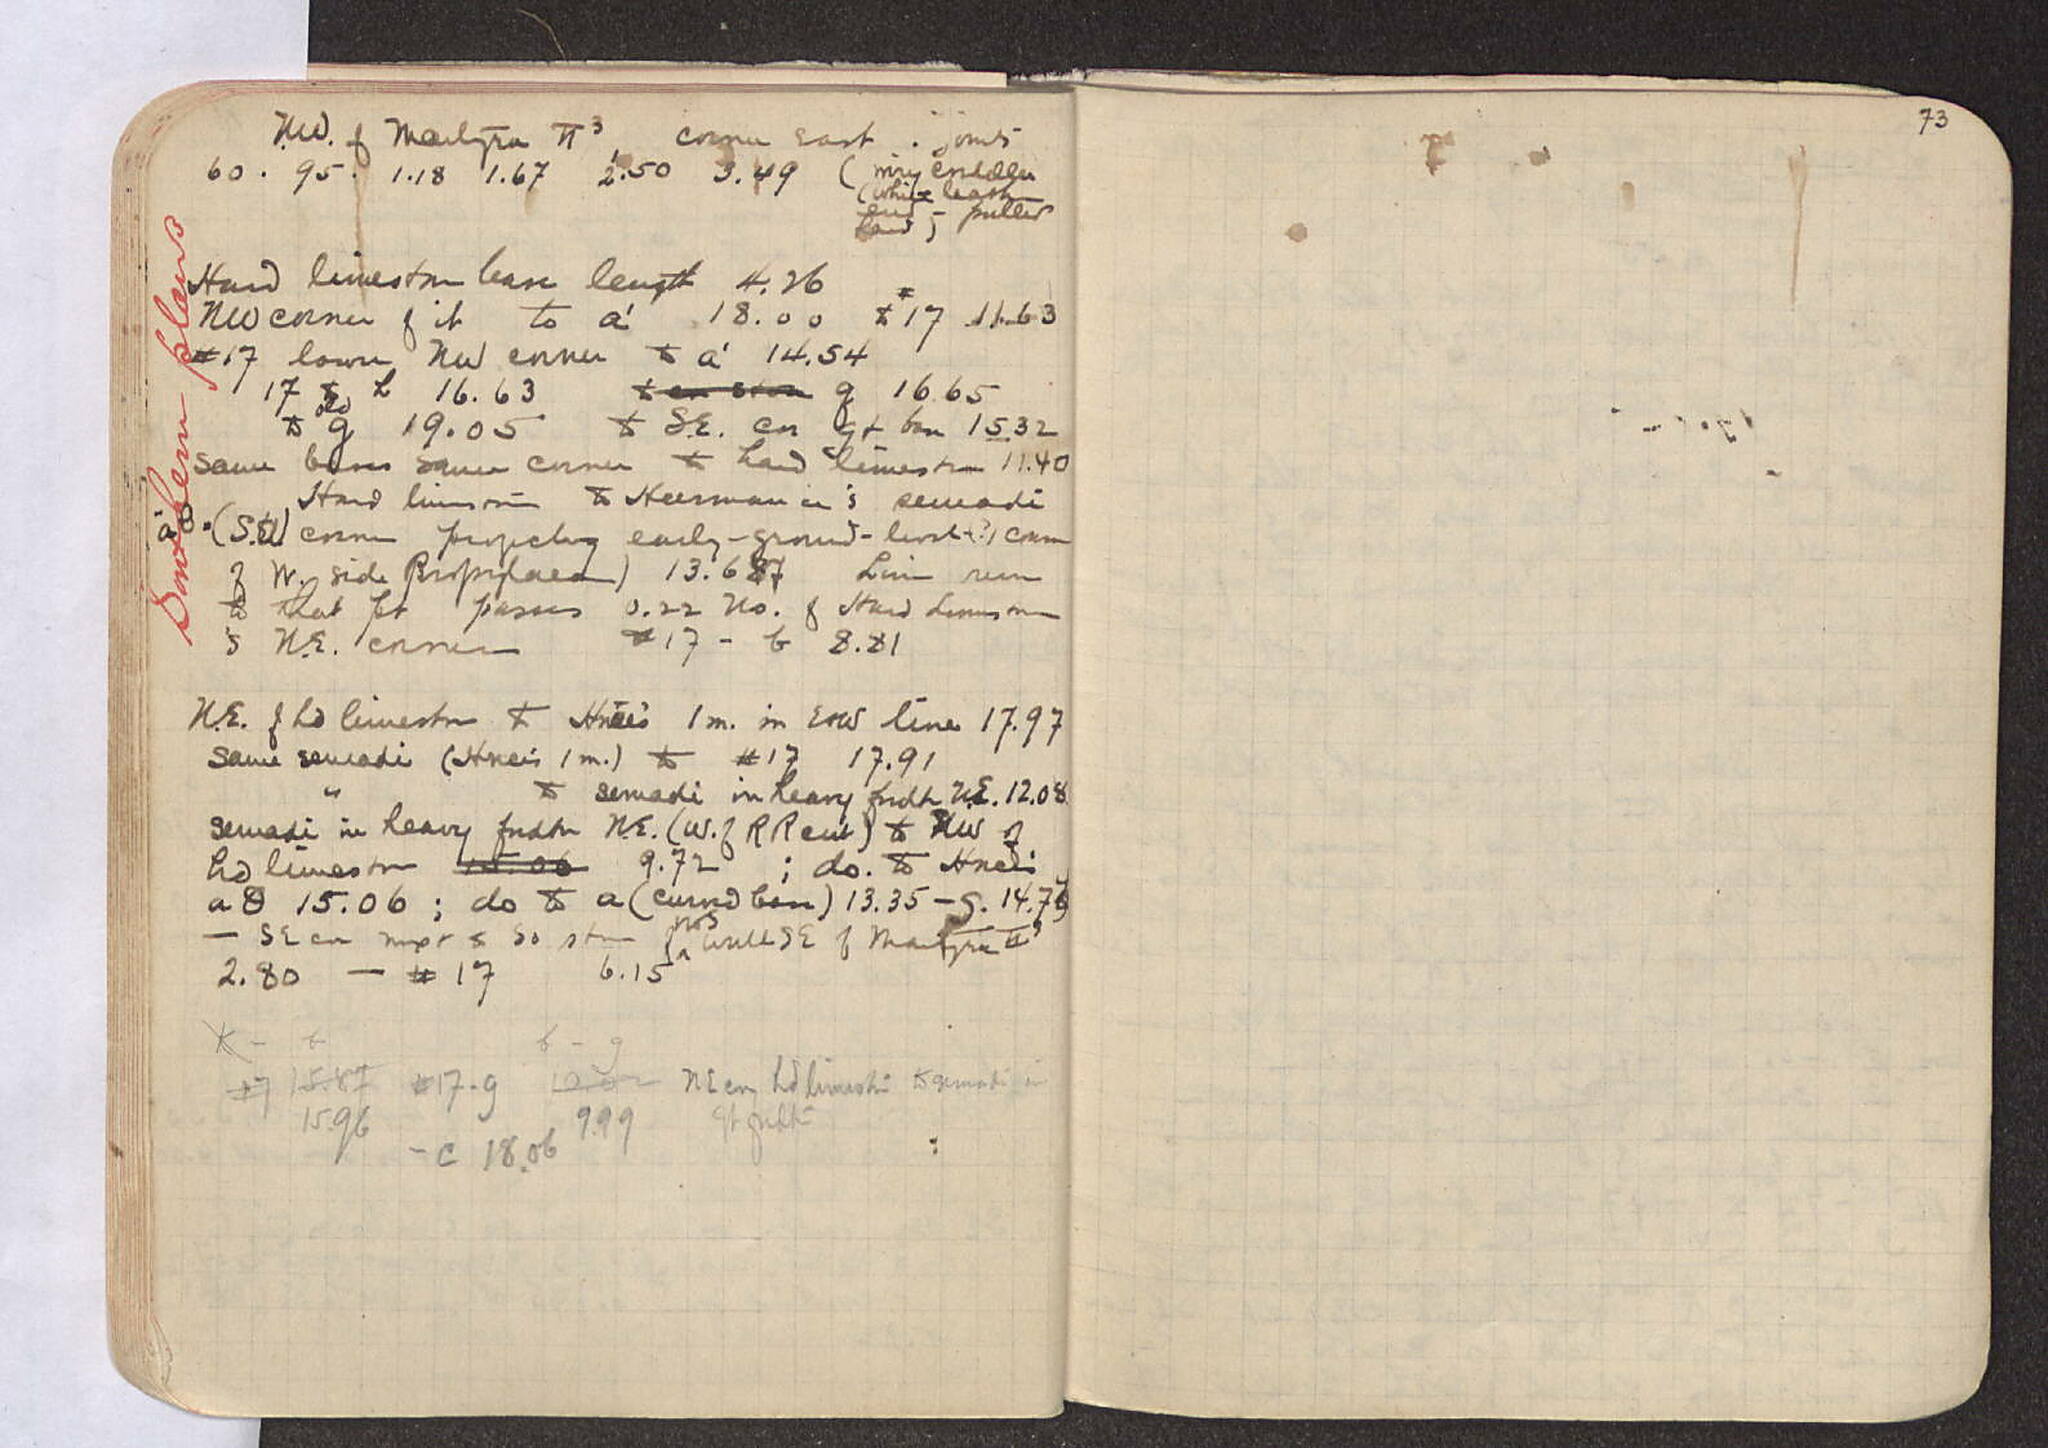 N.W. of Martyra π³ corner east . joints
60 . 95 . 1.18 1.67 2.50 3.49 (
(white
; - pulled
Southern plans
Hard limestone base length 4.26
NW corner of it to a' 18.00 to #17 11.63
#17 lower NW corner to a' 14.54
17 to h 16.63 g 16.65
to old g 19.05 to S.E. cor gt base 15.32
same bases same corner to hard limestone 11.40
Hard limestone to Heermance's semadi
"a" (S.W. corner projecting early-ground-level-(?) corner
of W. side Propylaea) 13.687 Line run
to that pt passes 0.22 No. of Hard Limestone
's N.E. corner #17 - b 8.81
N.E. of hd limestone to Hnce's 1 m. in EW line 17.97
Same semadi (Hnce's 1 m.) to #17 17.91
" to semadi in heavy fndtn N.E. 12.08
semadi in heavy fndtn N.E. (W. of RR cut) to NW of
hd limestone 15.06 9.72 ; do. to Hnce's
a 15.06 ; do to a (curved base) 13.35 - g. 14.76
- SE cor next to So stone of pros wall SE of Martyra π³
2.80 - #17 6.15
K - b b - g
#7 15.87 #17 . g 10.02 NE cor hd limestn to semadi in
15.96 9.99 gt fndtn
- c 18.06
73